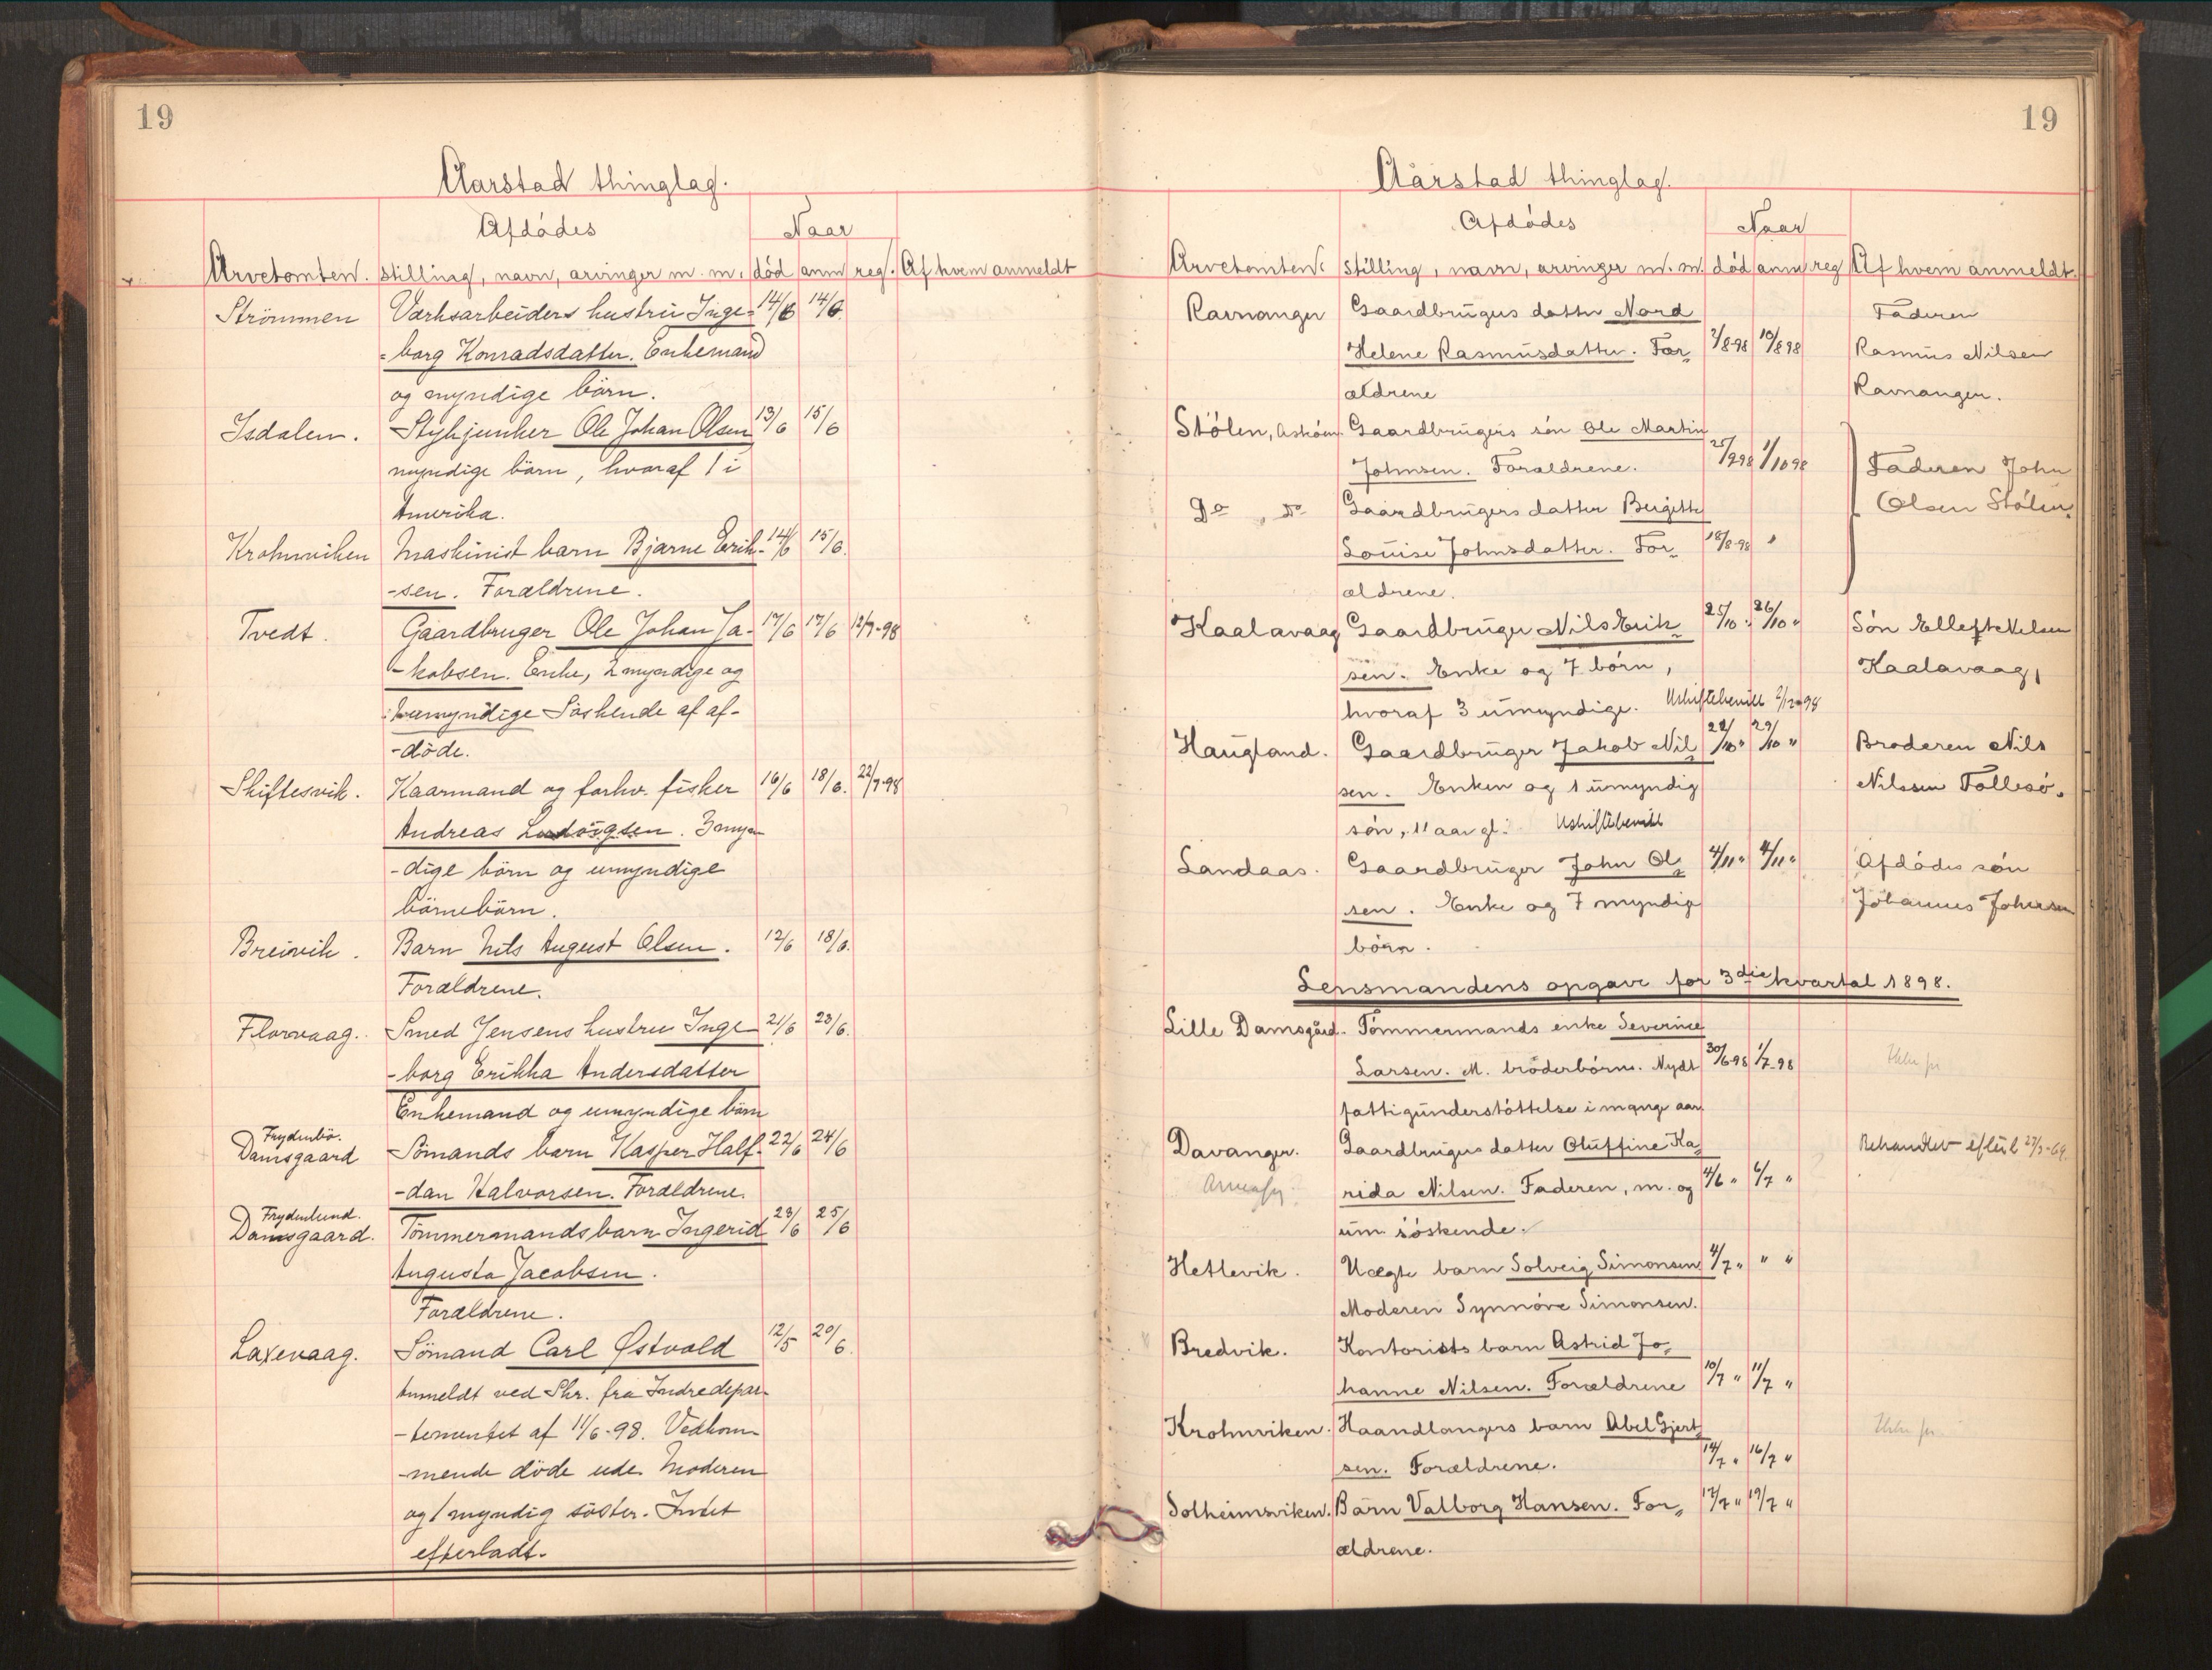 19
Aarstad thinglag.
Afdödes
Naar
Arvetomten. stilling, navn, arvinger m. m. död anm reg. Af hvem anmeldt
Strömmen Værksarbeiders hustru Inge- 14/6 14/6
-borg Konradsdatter. Enkemand
og myndige börn.
Isdalen. Stykjunker Ole Johan Olsen 13/6 15/6
myndige börn, hvoraf 1 i
Amerika.
Krohnviken Maskinist barn Bjarne Erik- 14/6 15/6.
-sen. Forældrene.
Tvedt. Gaardbruger Ole Johan Ja- 17/6 17/6 12/7-98
-kobsen. Enke, 2 myndige og
umyndige Söskende af af-
-döde.
Skiftesvik. Kaarmand og forhv. fisker 16/6 18/6. 22/7-98
Andreas Ludvigsen. 3 myn-
-dige börn og umyndige
börnebörn.
Breivik. Barn Nils August Olsen. 12/6 18/6.
Forældrene.
Florvaag. Smed Jensens hustru Inge 21/6 23/6.
-borg Erikka Andersdatter
Enkemand og umyndige börn
Frydenbö.
Damsgaard Sömands barn Kasper Half- 22/6 24/6
-dan Halvorsen. Forældrene.
Frydenlund.
Damsgaard. Tömmermands barn Ingerid 23/6 25/6
Augusta Jacobsen.
Forældrene.
Laxevaag. Sömand Carl Østvold 12/5 20/6.
Anmeldt ved Skr. fra Indredepar-
-tementet af 11/6-98. Vedkom-
-mende döde ude. Moderen
og 1 myndig söster. Intet
efterladt.
19
Aarstad thinglag.
Afdödes
Naar
Arvetomten. stilling, navn, arvinger m. m. död anm reg Af hvem anmeldt.
Ravnanger Gaardbrugers datter Nord Faderen
Helene Rasmusdatter. For- 7/8-98 10/8 98 Rasmus Nilsen
ældrene Ravnanger.
Stölen, Asköen. Gaardbrugers sön Ole Martin
Johnsen. Forældrene. 25/9 98 1/10 98 Faderen John
Do, do Gaardbrugers datter Bergitte Olsen Stölen.
Louise Johnsdatter. For- 18/8-98 "
ældrene.
Kaalavaag Gaardbruger Nils Erik- 25/10. 26/10 " Sön Elleft Nilsen
sen. Enke og 7 börn, Kaalavaag,
hvoraf 3 umyndige. Uskiftebevill 2/12 98
Haugland. Gaardbruger Jakob Nil 22/10 " 29/10 " Broderen Nils
sen. Enken og 1 umyndig Nilssen Follesö.
sön, 11 aar gl. Uskiftebevill
Landaas. Gaardbruger John Ol- 4/11 " 4/11 " Afdödes sön
sen. Enke og 7 myndig Johannes Johnsen
börn.
Lensmandens opgave for 3die kvartal 1898.
Lille Damsgård. Tömmermands enke Severine
Larsen. M. bröderbörn. Nydt 30/6 98 1/7-98
fattigunderstöttelse i mange aar.
Davanger. Gaardbrugers datter Oluffine Ka- Behandlet
rida Nilsen. Faderen, m. og 4/6 " 6/7 "
um. söskende.
Hetlevik. Uægte barn Solveig Simonsen 4/7 " " "
Moderen Synnöve Simonsen.
Bredvik. Kontorists barn Astrid Jo-
hanne Nilsen. Forældrene 10/7 " 11/7 "
Krohnviken. Haandlangers barn Abel Gjert-
sen. Forældrene. 14/7 " 16/7 "
Solheimsviken. Barn Valborg Hansen. For- 17/7 " 19/7 "
ældrene.